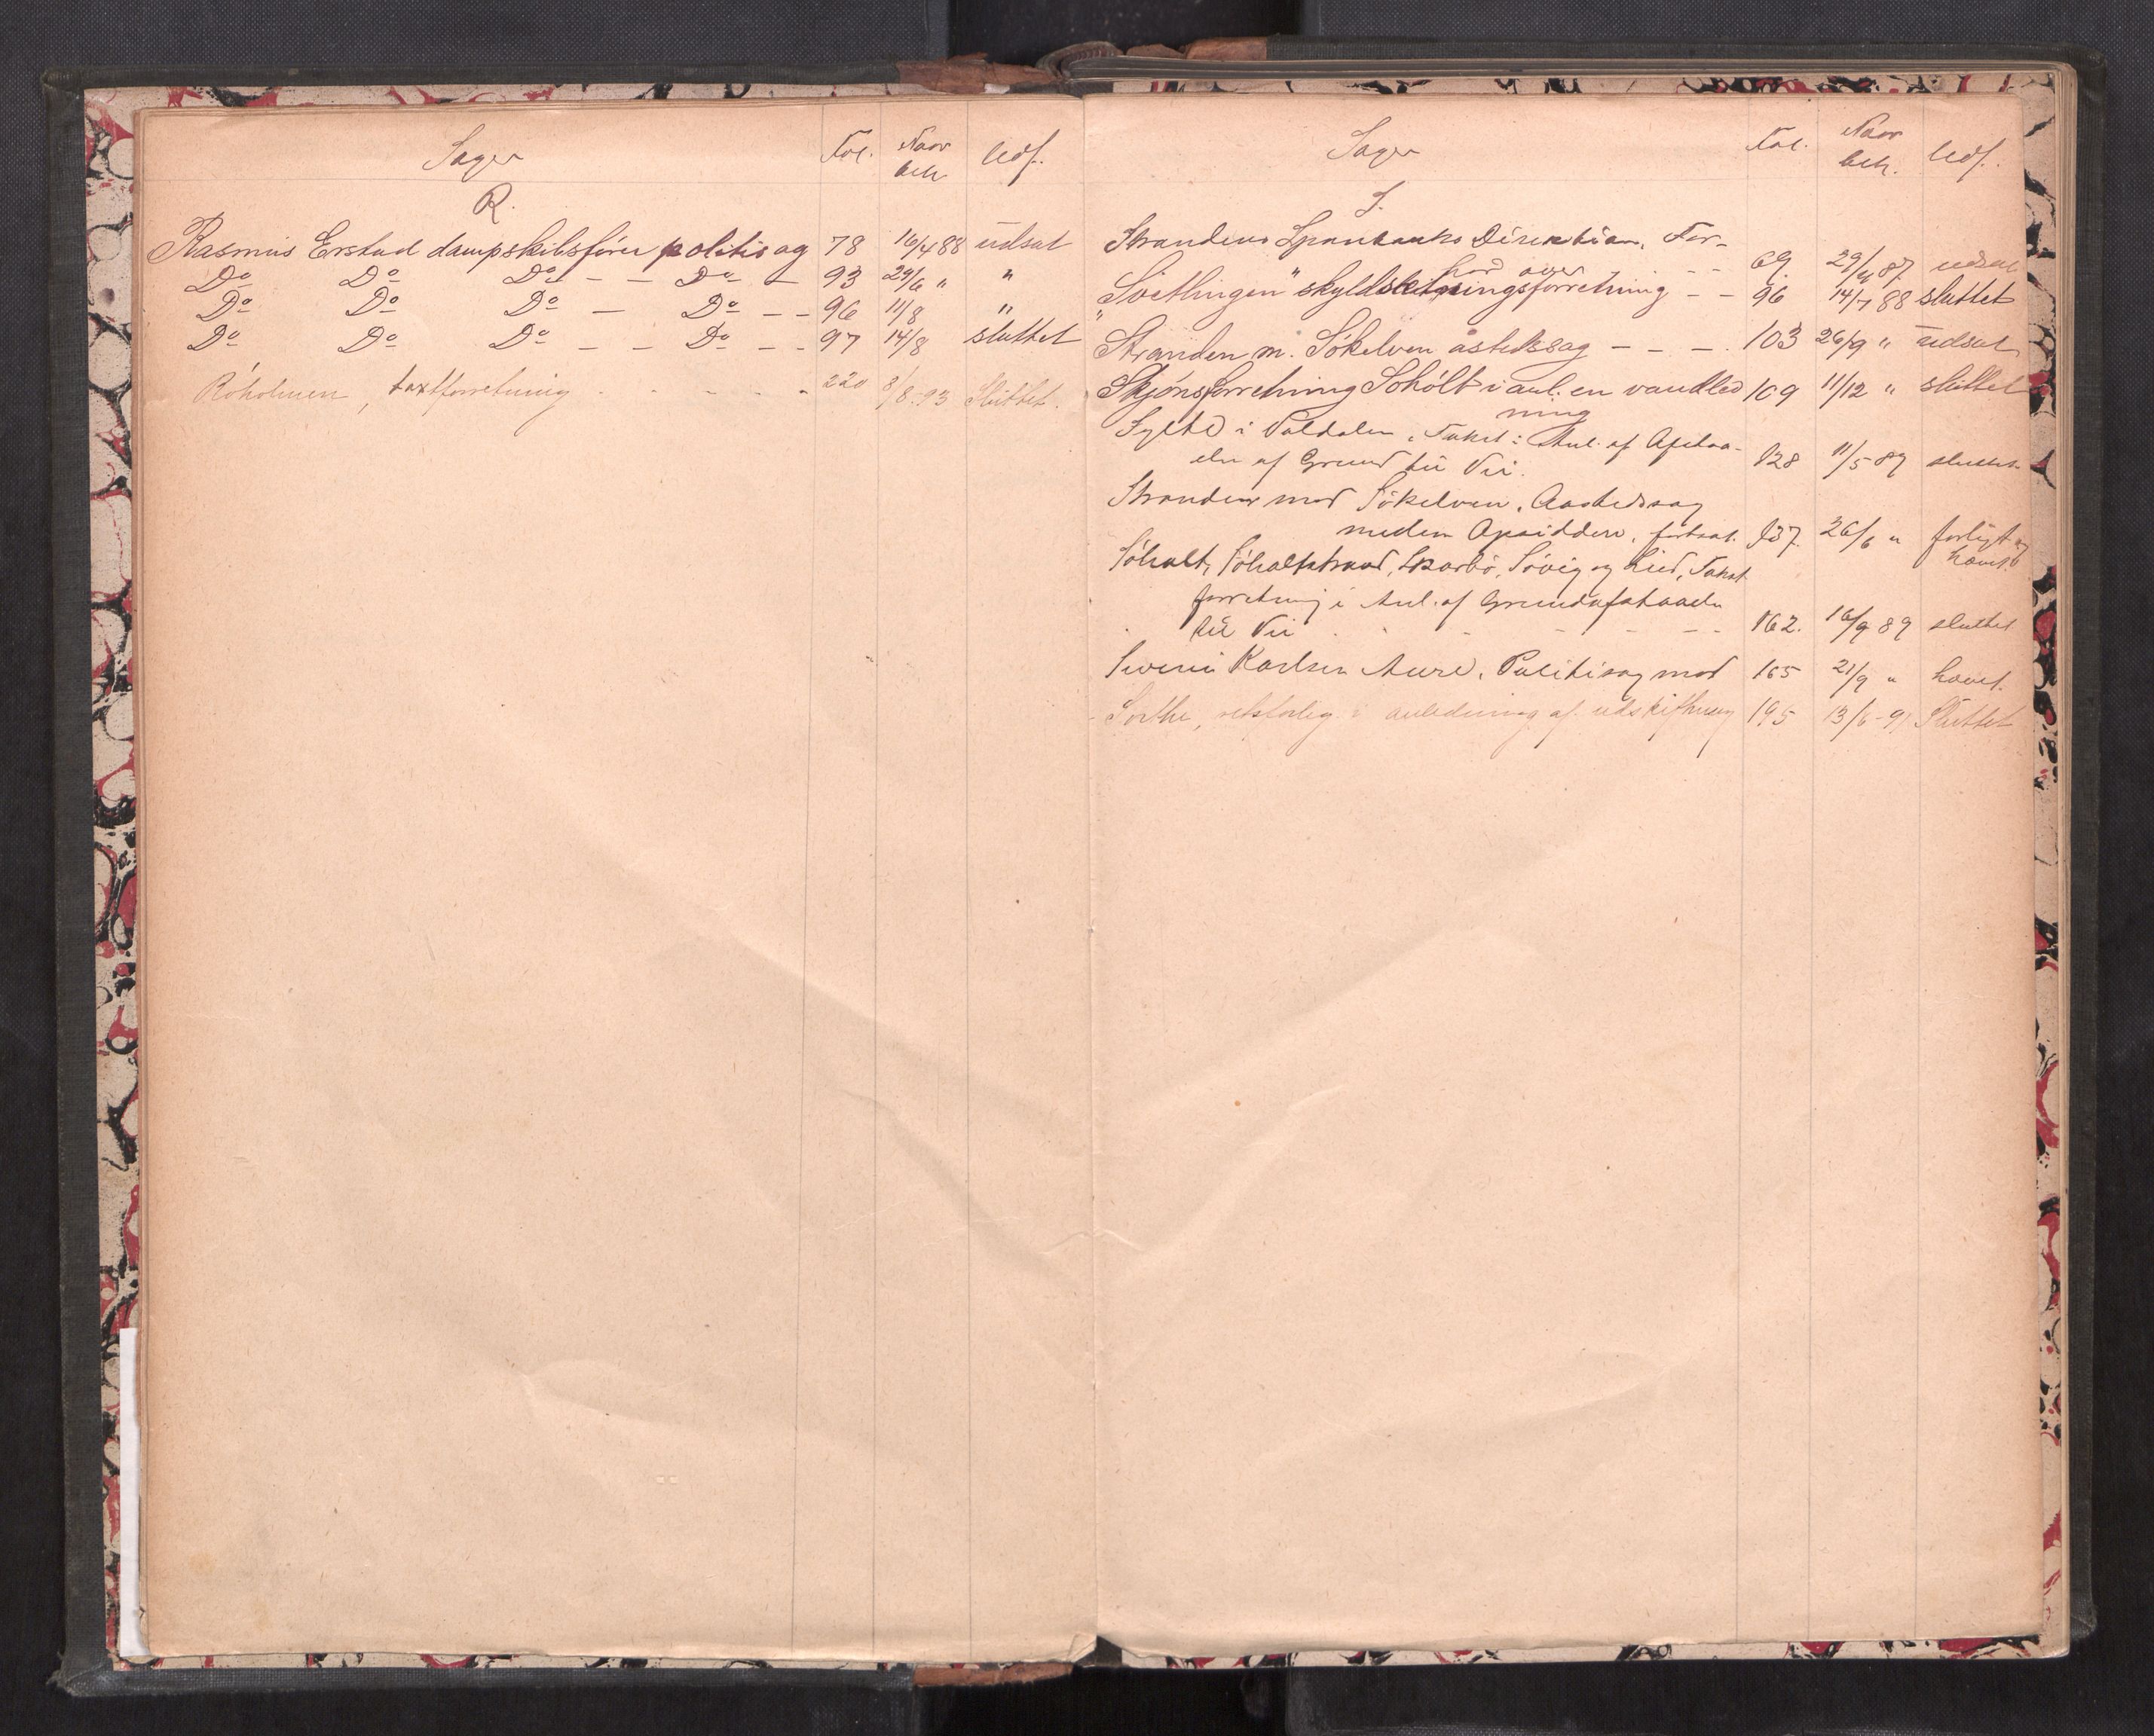 Sager Fol. Naar beh Udf.
R.
Rasmus Erstad dampskibsfører politisag 78 16/4 88 udsat
Do Do Do - - Do - 93 29/6 " "
Do Do Do - Do - - 96 11/8 "
Do Do Do - - Do - - 97 14/8 sluttet
Röholmen, taxtforretning - - - - 220 8/8-93 Sluttet.
Sager Fol. Naar beh. Udf.
S.
Strandens Sparebanks Direktion, For-
hör over - - 69. 29/11 87. udsat
"Svethingen" skyldsletningsforretning - - 96 14/7 88 sluttet
Stranden m. Sökelven åstedssag - - - 103 26/9 " udsat
Skjönsforretning Sohölt i anl. en vandled 109 11/12 " sluttet
ning
Sylte i Valdalen, Takst: Anl. af Afstaa-
else af Grund til Vei. 128 11/5 89 sluttet
Stranden mod Sökelven, Aastedssag
mellem Opsiddere, fortsat. 137. 26/6 " forligt og
hævet.
Söholt, Söholtstrand, Skarbö, Sövig og Lied, Takst
forretning i Anl. af Grundafstaaelse
til Vei - - - - 162. 16/9 89 sluttet
Severin Karlsen Aure, Politisag mod 165 21/9 " hævet.
Sorthe, retsforlig i anledning af udskiftning 195 13/6-91 Sluttet